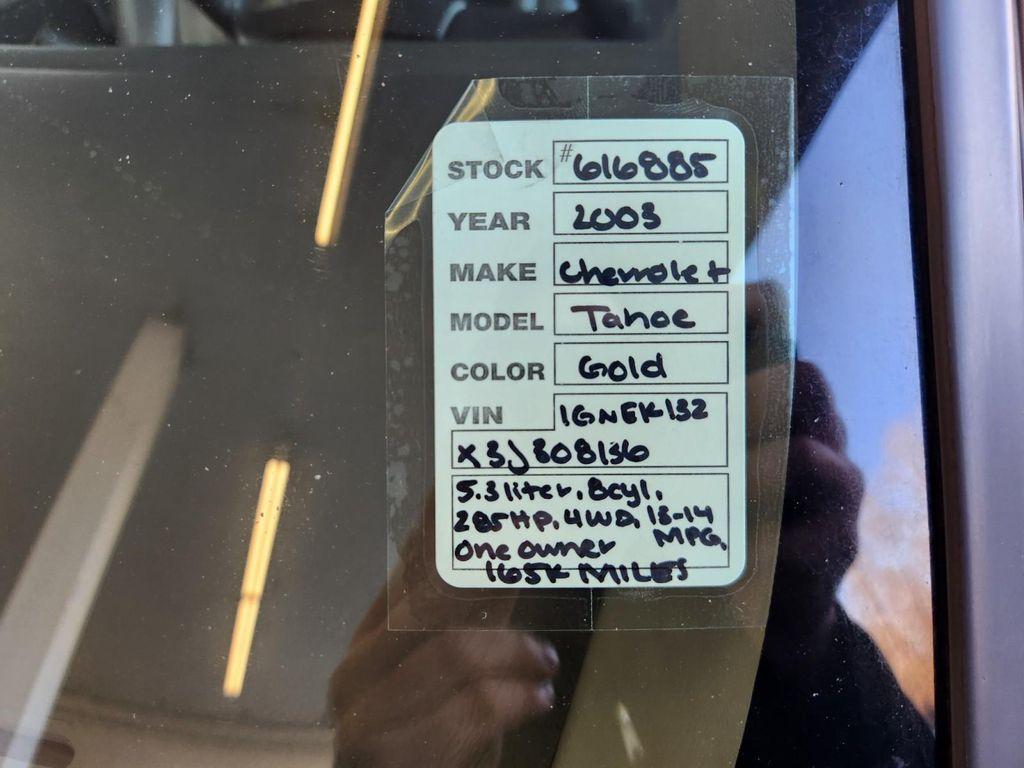 STOCK #616885
YEAR 2003
MAKE Chevrolet
MODEL Tahoe
COLOR Gold
VIN 1GNEK13Z
X3J308136
5.3 liter, 8cyl,
285HP, 4WD, 13-14
One owner MPG,
165K MILES